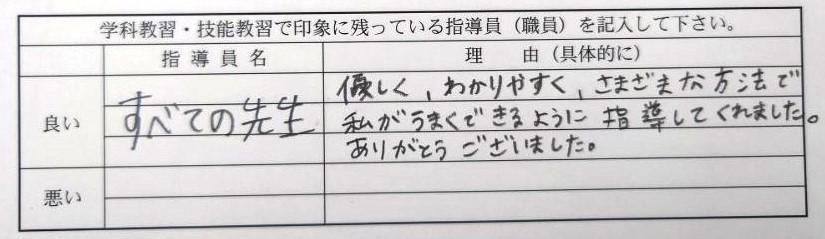 学科教習・技能教習で印象に残っている指導員（職員）を記入して下さい。
指導員名
理　由（具体的に）
良い
すべての先生
優しく，わかりやすく，さまざまな方法で
私がうまくできるように指導してくれました。
ありがとうございました。
悪い